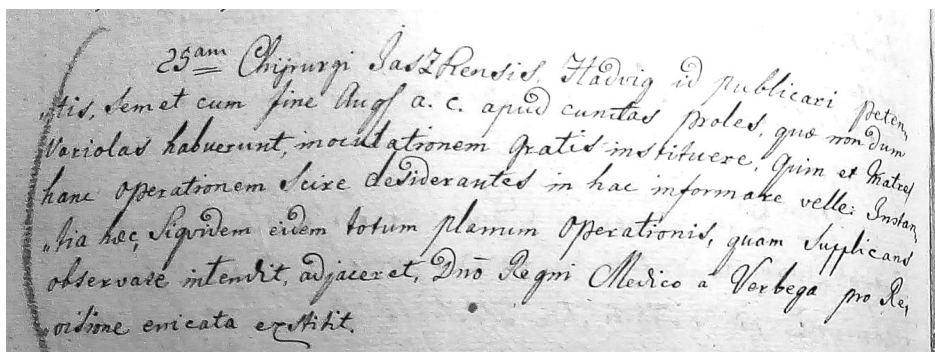 25am Chyrurgi Jaszkensis Hadvig id publicari peten„
„tis, semet cum fine Augs a. c. apud cunctas proles, quæ nondum
Variolas habuerunt, inoculationem gratis instituere, quim et Matres
hanc operationem scire desiderantes in hac informare velle: Instan„
„tia hæc, siquidem eidem totum planum operationis, quam supplicans
observare intendit, adjaceret, Dnō Regni Medico a Verbega pro Re„
„visione enicata exstitit.